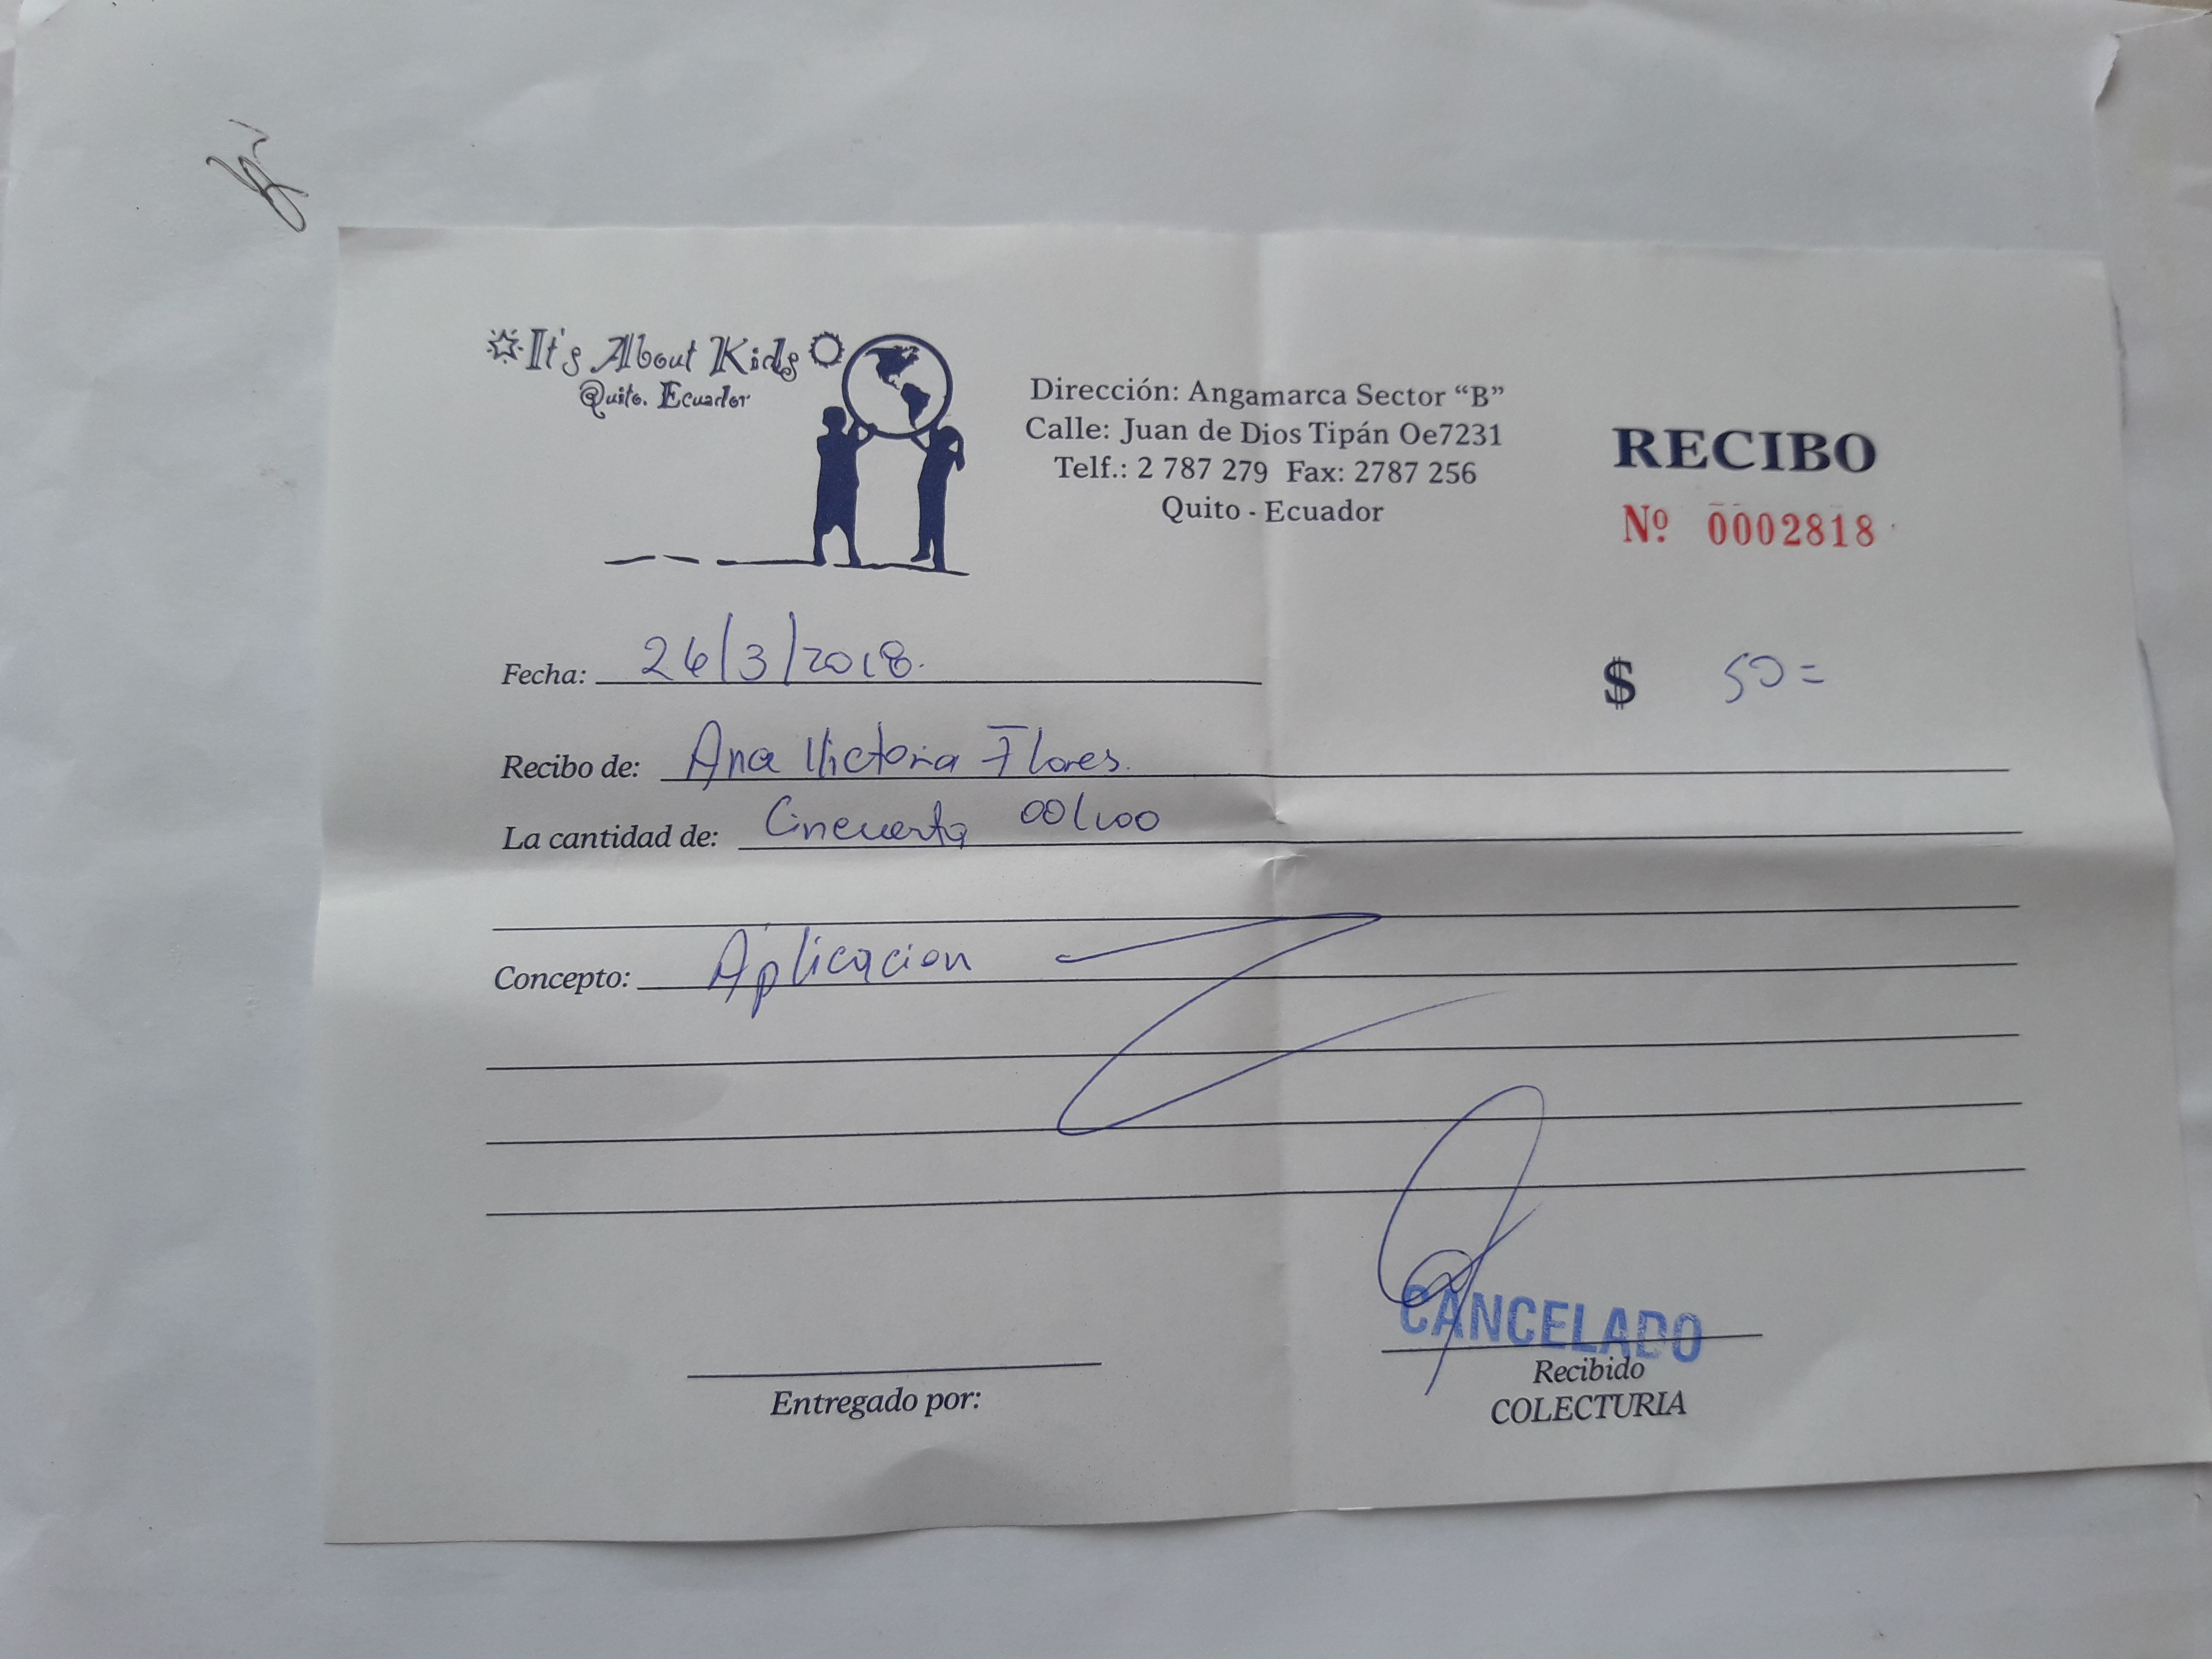 It's About Kids
Quito, Ecuador
Dirección: Angamarca Sector "B"
Calle: Juan de Dios Tipán Oe7231
Telf.: 2 787 279 Fax: 2787 256
Quito - Ecuador
RECIBO
Nº. 0002818
Fecha: 26/3/2018.
$ 50=
Recibo de: Ana Victoria Flores.
La cantidad de: Cincuenta 00/100
Concepto: Aplicacion
Entregado por:
CANCELADO
Recibido
COLECTURIA